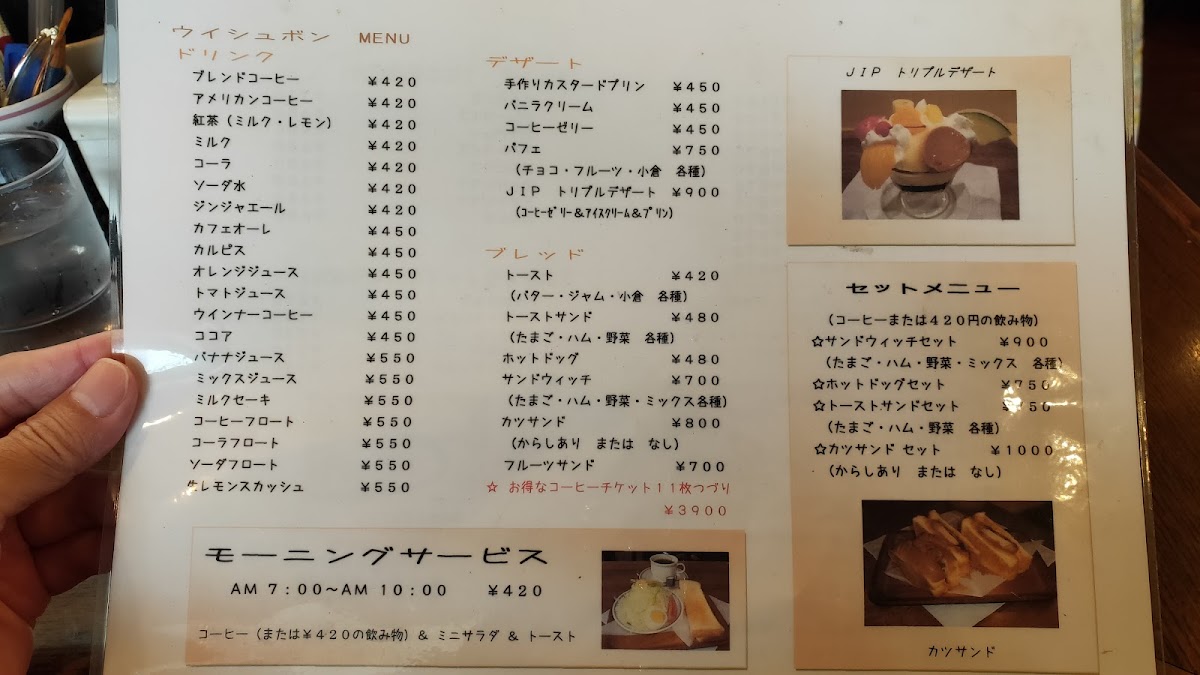 ウイシュボン MENU
ドリンク
ブレンドコーヒー ￥420
アメリカンコーヒー ￥420
紅茶（ミルク・レモン） ￥420
ミルク ￥420
コーラ ￥420
ソーダ水 ￥420
ジンジャエール ￥420
カフェオーレ ￥450
カルピス ￥450
オレンジジュース ￥450
トマトジュース ￥450
ウインナーコーヒー ￥450
ココア ￥450
バナナジュース ￥550
ミックスジュース ￥550
ミルクセーキ ￥550
コーヒーフロート ￥550
コーラフロート ￥550
ソーダフロート ￥550
生レモンスカッシュ ￥550
デザート
手作りカスタードプリン ￥450
バニラクリーム ￥450
コーヒーゼリー ￥450
パフェ ￥750
（チョコ・フルーツ・小倉 各種）
JIP トリプルデザート ￥900
（ｺｰﾋｰｾﾞﾘｰ＆ｱｲｽｸﾘｰﾑ＆ﾌﾟﾘﾝ）
ブレッド
トースト ￥420
（バター・ジャム・小倉 各種）
トーストサンド ￥480
（たまご・ハム・野菜 各種）
ホットドッグ ￥480
サンドウィッチ ￥700
（たまご・ハム・野菜・ミックス各種）
カツサンド ￥800
（からしあり または なし）
フルーツサンド ￥700
☆ お得なコーヒーチケット11枚つづり
￥3900
モーニングサービス
AM 7：00～AM 10：00 ￥420
コーヒー（または￥420の飲み物）＆ ミニサラダ ＆ トースト
JIP トリプルデザート
セットメニュー
（コーヒーまたは420円の飲み物）
☆サンドウィッチセット ￥900
（たまご・ハム・野菜・ミックス 各種）
☆ホットドッグセット ￥750
☆トーストサンドセット ￥750
（たまご・ハム・野菜 各種）
☆カツサンド セット ￥1000
（からしあり または なし）
カツサンド